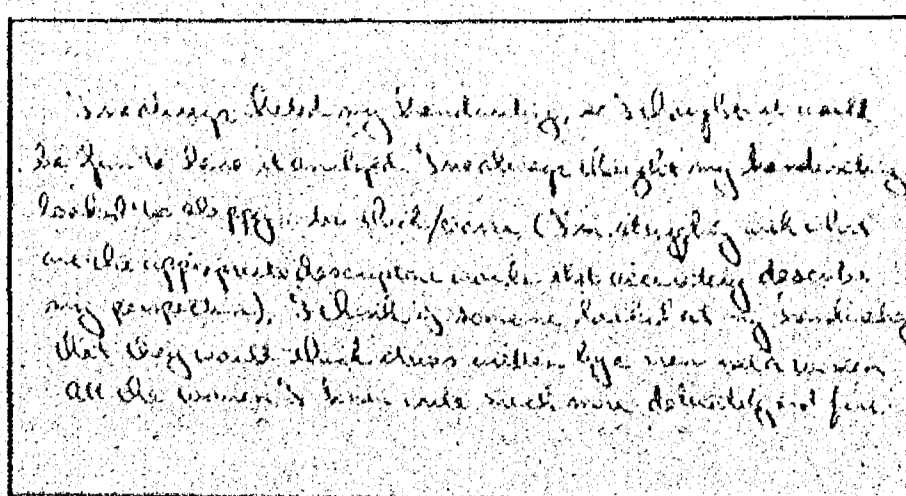 I've always hated my handwriting, so I thought it would
be fun to have it analyzed. I've always thought my handwriting
looked too sloppy, too thick/coarse (I'm struggling with what
are the appropriate descriptive words that accurately describe
my perspective). I think if someone looked at my handwriting
that they would think it was written by a man not a woman
All the women I know write much more delicately and fine.